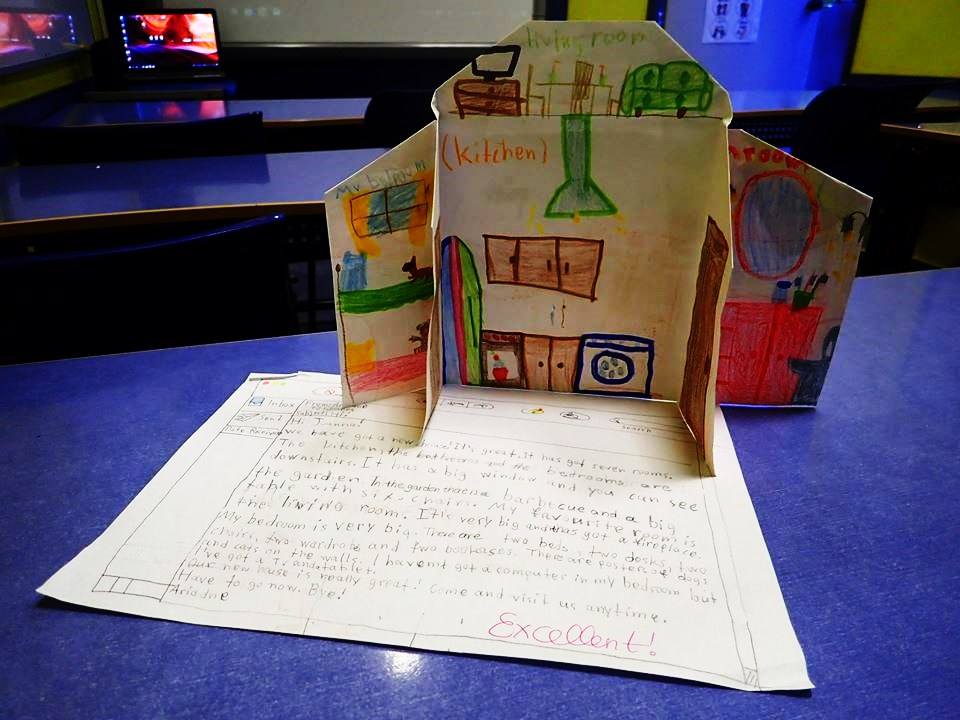 living room
(kitchen)
My bedroom
Inbox
Send
Search
Hi
We have got a new house! It's great. It has got seven rooms.
The kitchen, the bathrooms and the bedrooms are
downstairs. It has a big window and you can see
the garden In the garden there's a barbecue and a big
table with six chairs. My favourite room is
the living room. It's very big and has got a fireplace.
My bedroom is very big. There are two beds, two desks, two
chairs, two wardrobs and two bookases. There are posters of dogs
and cats on the walls. I havent got a computer in my bedroom but
I've got a TV and a tablet.
Our new house is really great! Come and visit us anytime.
Have to go now. Bye!
Ariadne
Excellent!